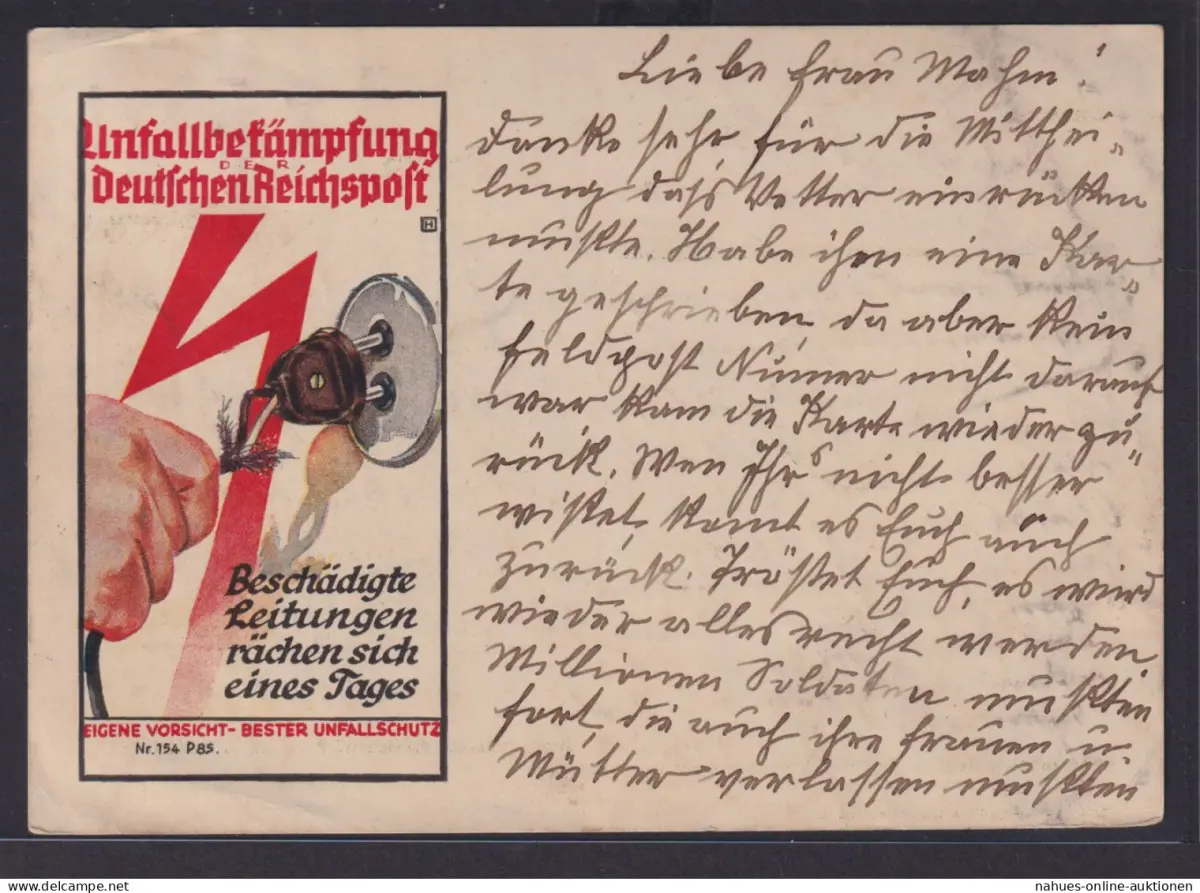 Unfallbekämpfung
DER
Deutschen Reichspost
H
Beschädigte
Leitungen
rächen sich
eines Tages
EIGENE VORSICHT- BESTER UNFALLSCHUTZ
Nr. 154 P85.
Liebe Frau Mahm!
Danke sehr für die Mitthei„
lung dass Vetter einrücken
muste. Habe ihm eine Kar„
te geschrieben da aber kein
Feldpost Numer nicht darauf
war kam die Karte wieder zu„
rück. Wen Ihrs nicht besser
wistet, komt es Euch auch
zurück. Tröstet Euch, es wird
wieder alles recht werden
Millionen Soldaten musten
fort, die auch ihre Frauen u
Mütter verlassen musten
nahues-online-auktionen